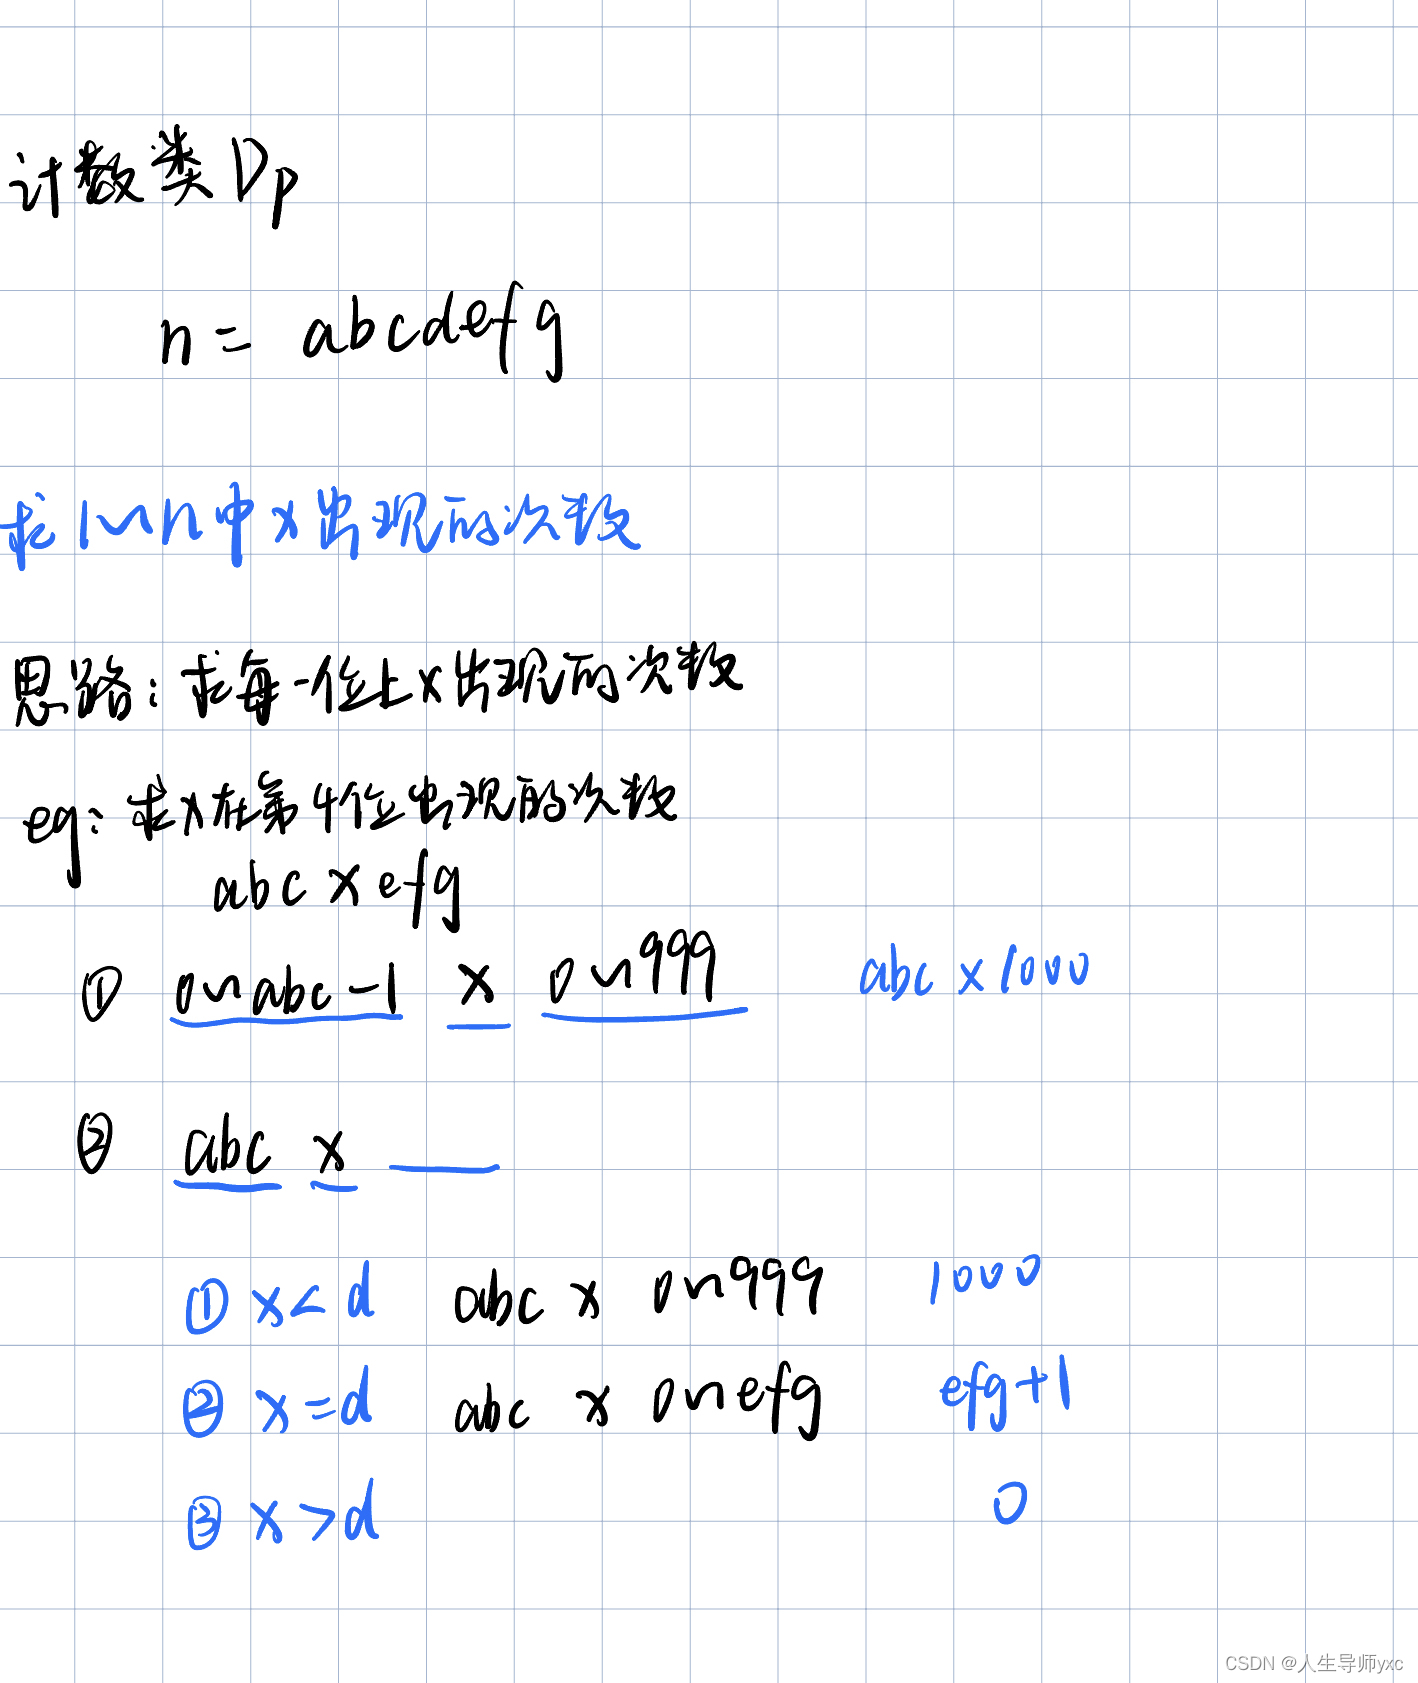 计数类Dp
n = abcdefg
求1~n中x出现的次数
思路：求每一位上x出现的次数
eg：求x在第4位出现的次数
abc x efg
① 0~abc-1 x 0~999 abc x 1000
② abc x
① x < d abc x 0~999 1000
② x = d abc x 0~efg efg+1
③ x > d 0
CSDN @人生导师yxc